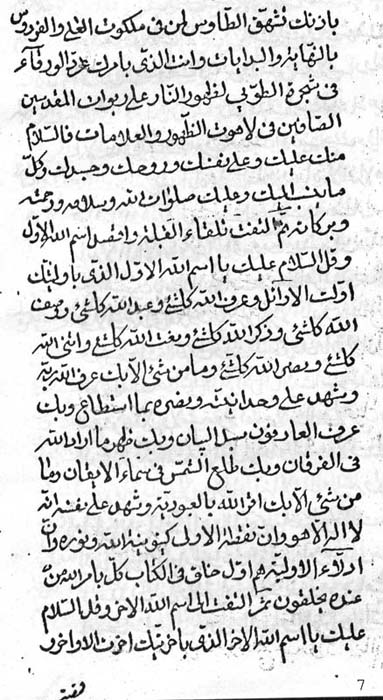 باذنك تشهق الطاوس لمن فى ملكوت العلى والفردوس
بالنهاية والبدايات وانت الذى بامرك عردة الورقاء
فى شجرة الطوبى لظهور النار على ربوات المقدسين
الصافين فى لاهوت الظهور والعلامات فالسلام
منك عليك وعلى نفسك وروحك وجسدك وكل
ما ينسب اليك وعليك صلوات الله وسلامه ورحمته
وبركاته ثم التفت تلقاء القبلة واقصد اسم الله الاول
وقل السلام عليك يا اسم الله الاول الذى باوليتك
اولت الاوائل وعرف الله كلشئ وعبد الله كلشئ ووصف
الله كلشئ وذكر الله كلشئ ونعت الله كلشئ واثنى الله
كلشئ ونصر الله كلشئ وما من شئ الا بك عرف الله ربه
وشهد على وحدانيته ونصره بما استطاع وبك
عرف العارفون سبل البيان وبك ظهر ما اراد الله
فى الفرقان وبك طلع الشمس فى سماء الايقان وما
من شئ الا بك اقر الله بالعبودية وشهد على نفسه انه
لا اله الا هو وان نقطة الاولى كينونية الله ونوره وان
ادلاء الاولية هم اول خلق فى الكتاب كل بامر الله من
عنده يخلقون ثم التفت الى اسم الله الاخر وقل السلام
عليك يا اسم الله الاخر الذى باخريتك اخرت الاواخر و
7